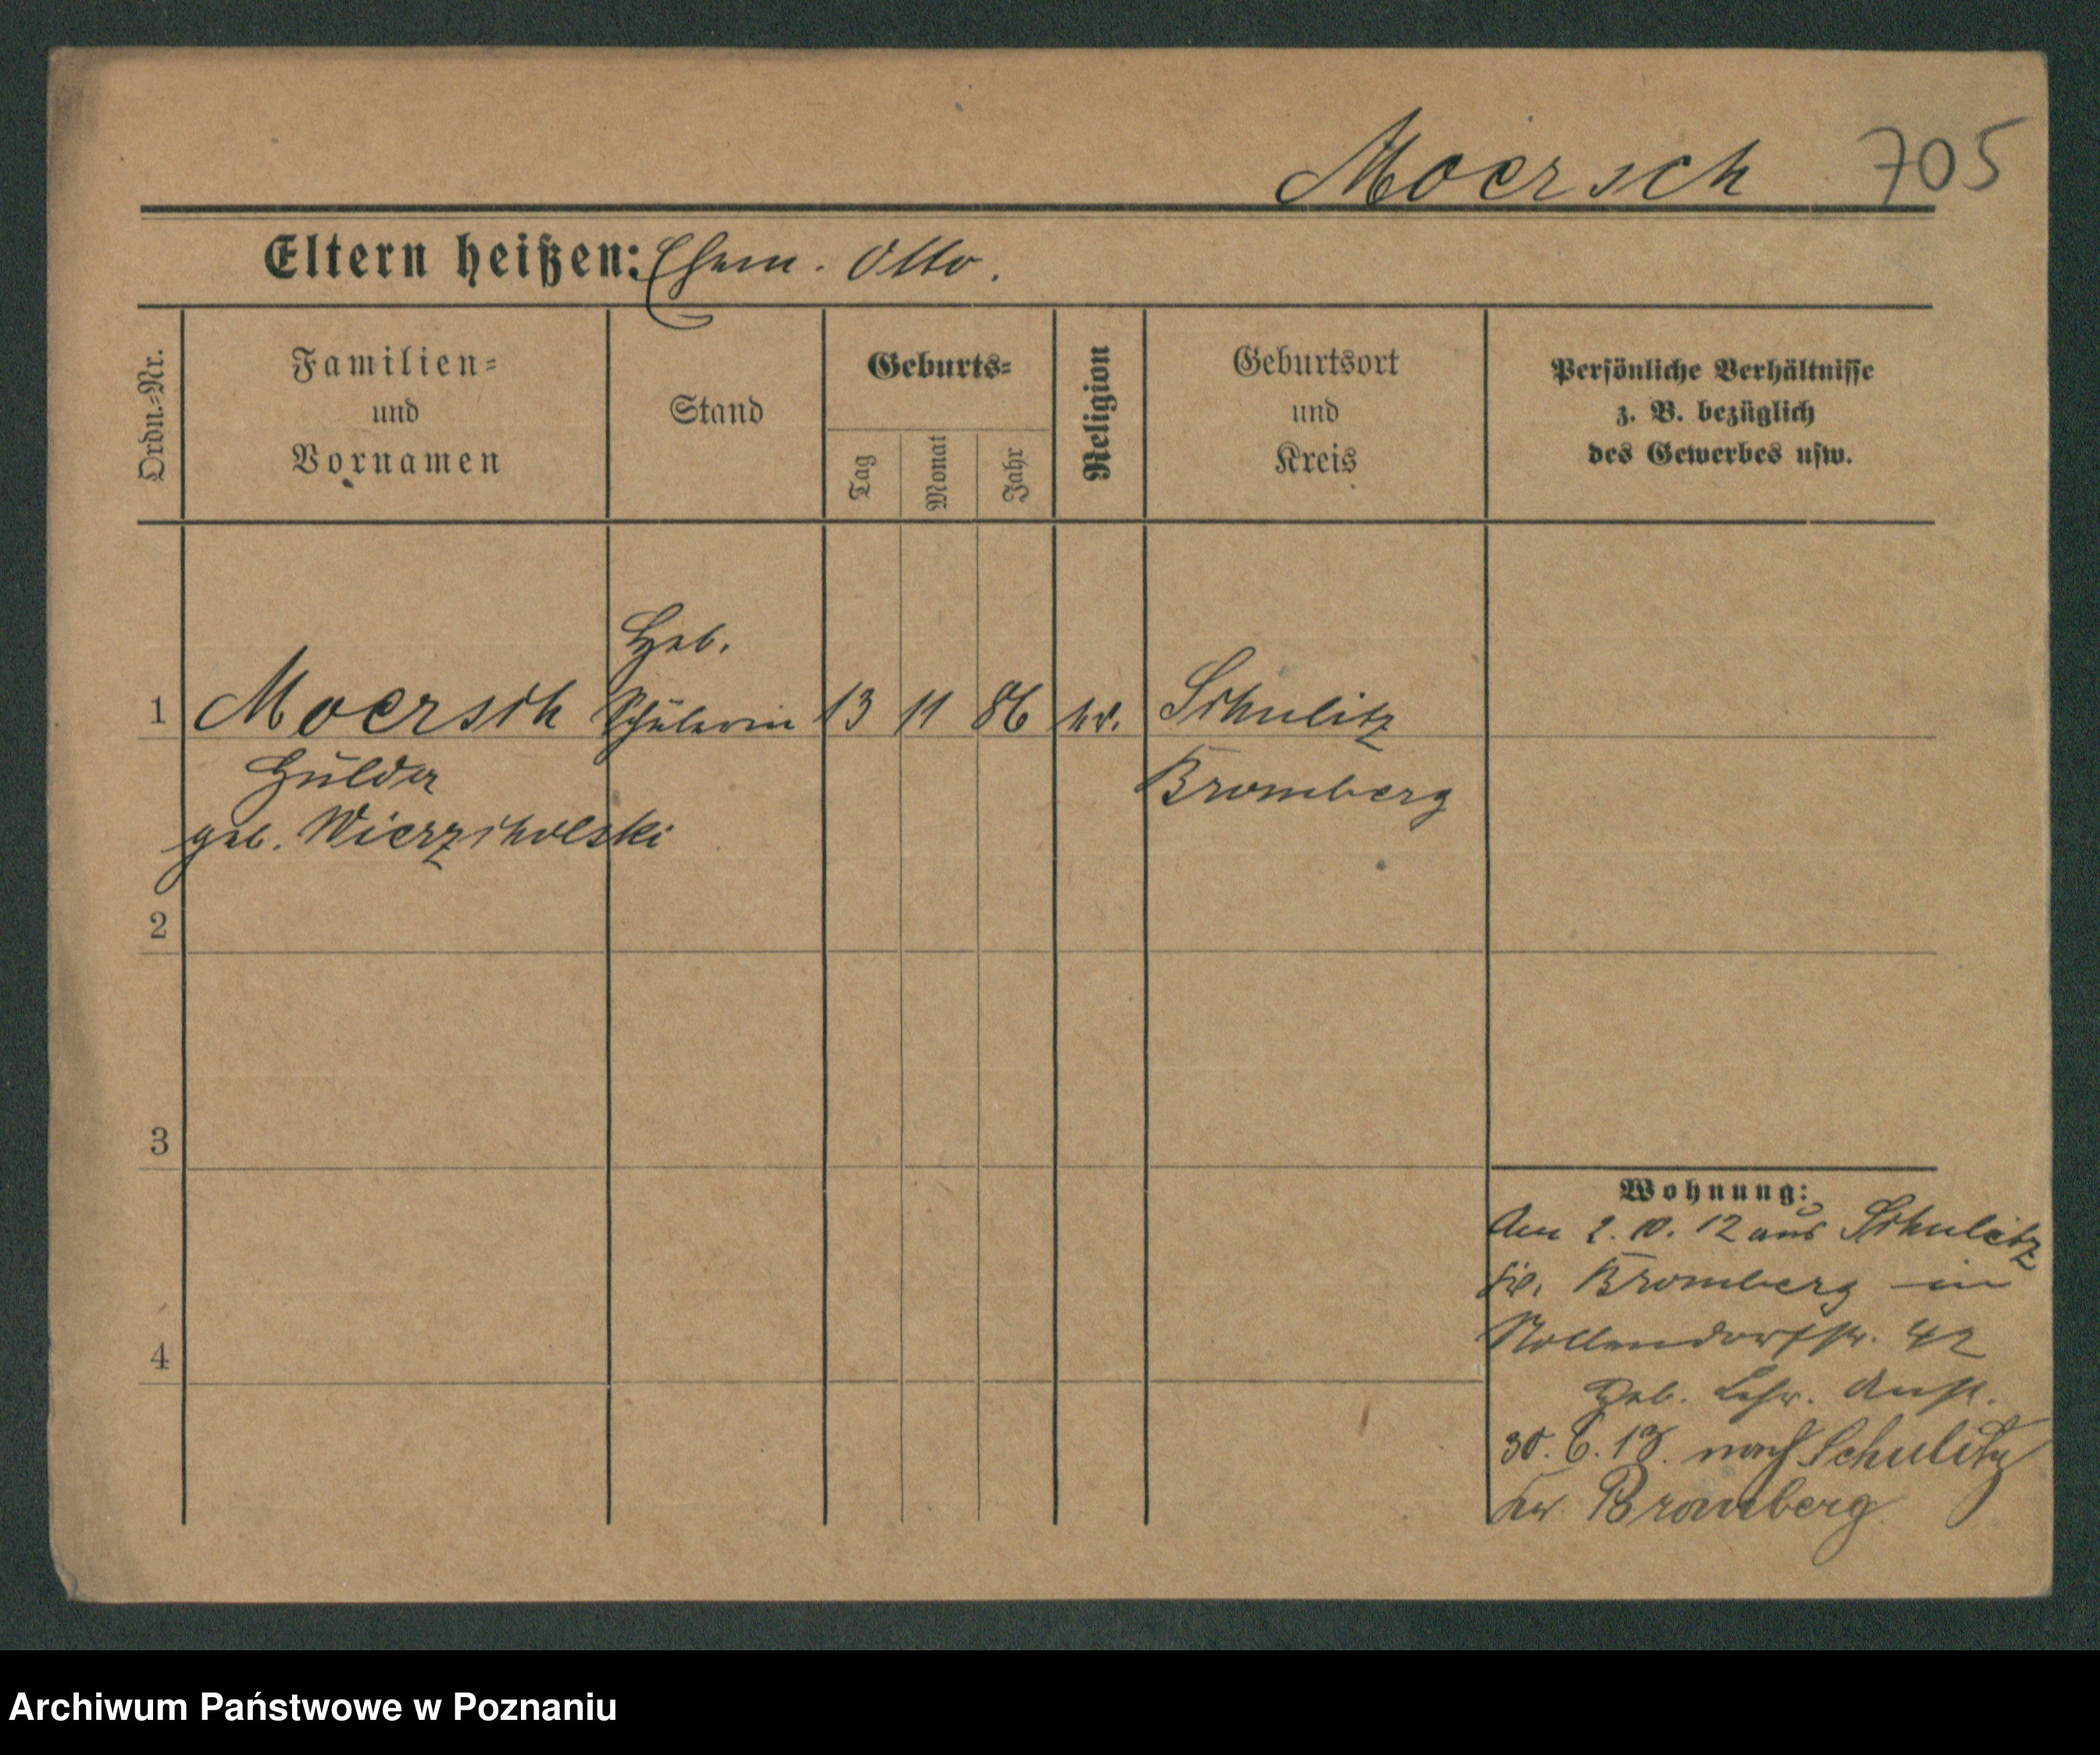 Moersch 705
Eltern heißen: Ehem. Otto.
Ordn.=Nr.
Familien=
und
Vornamen
Stand
Geburts=
Tag
Monat
Jahr
Religion
Geburtsort
und
Kreis
Persönliche Verhältnisse
z. B. bezüglich
des Gewerbes usw.
Heb.
1 Moersch Schülerin 13 11 86 Schulitz
Hulda Bromberg
geb.
2
3
4
Wohnung:
Am 2. 10. 12 aus Schulitz
Bromberg in
Nollendorfstr. 42
Heb. Lehr. Anst.
30. 6. 13. nach Schulitz
Kr. Bromberg
Archiwum Państwowe w Poznaniu